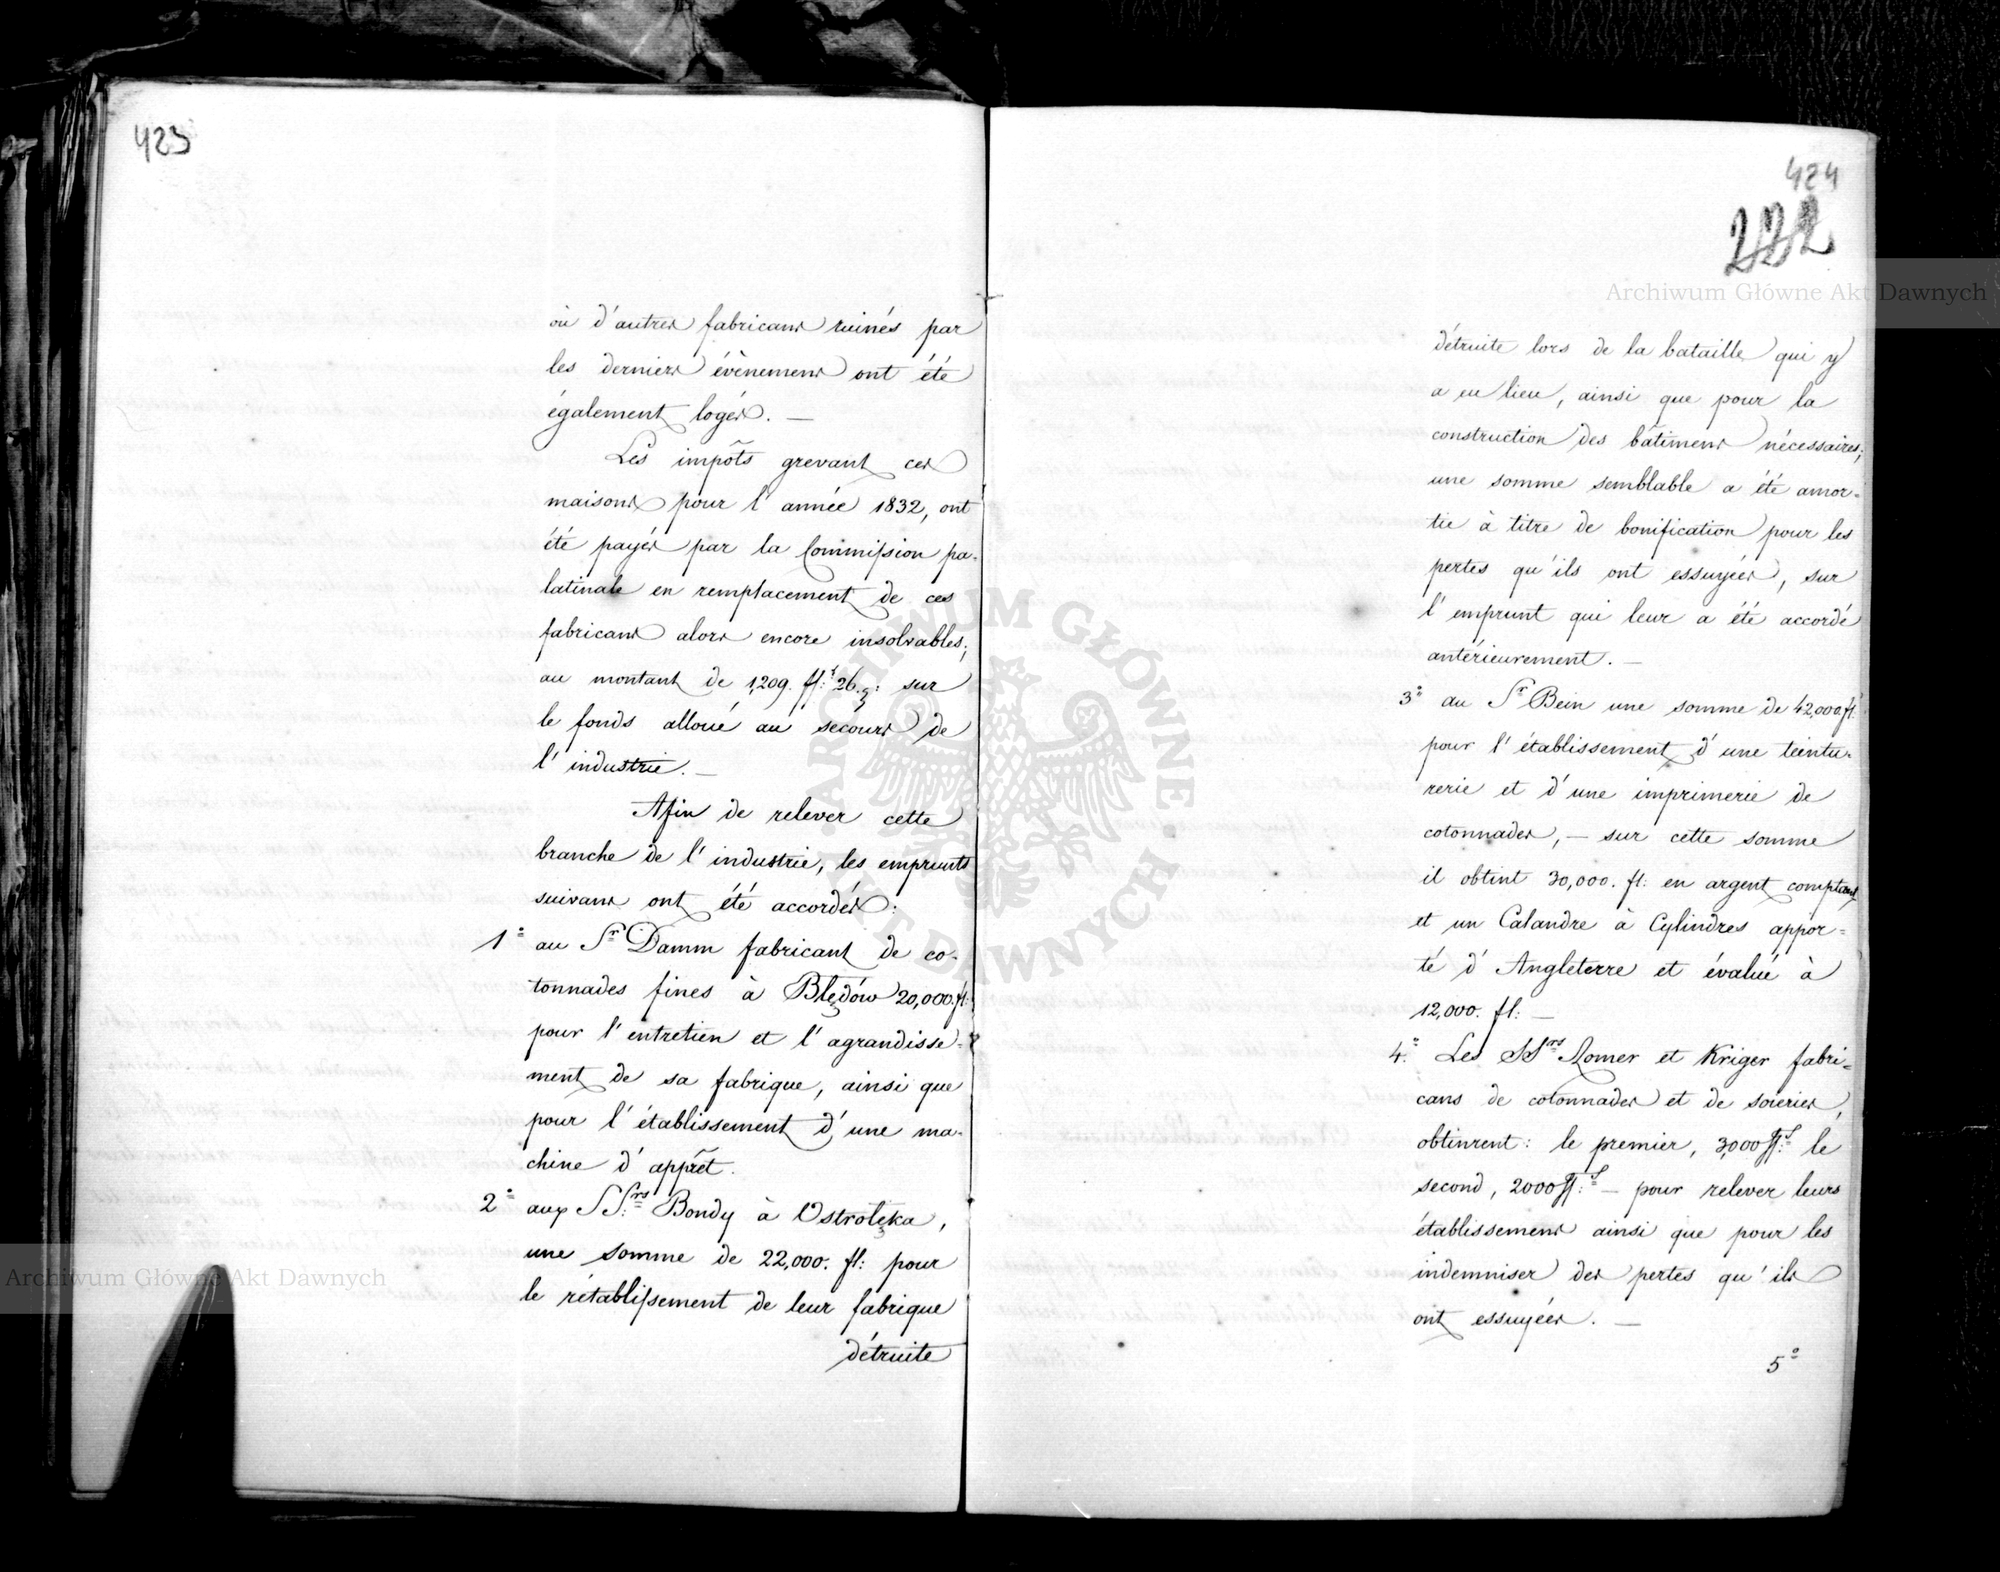 423
où d'autres fabricans ruinés par
les derniers évènemens ont été
également logés. —
Les impôts grevant ces
maisons pour l'année 1832, ont
été payés par la Commission pa-
latinale en remplacement de ces
fabricans alors encore insolvables,
au montant de 1,209. fl: 26 g: sur
le fonds alloué au secours de
l'industrie. —
Afin de relever cette
branche de l'industrie, les emprunts
suivans ont été accordés:
1° au Sr Damm fabricant de co-
tonnades fines à Błędów 20,000. fl:
pour l'entretien et l'agrandisse-
ment de sa fabrique, ainsi que
pour l'établissement d'une ma-
chine d'apprêt.
2° aux SSrs Bondy à Ostrołęka,
une somme de 22,000. fl: pour
le rétablissement de leur fabrique
détruite
424
222
détruite lors de la bataille qui y
a eu lieu, ainsi que pour la
construction des bâtimens nécessaires;
une somme semblable a été amor-
tie à titre de bonification pour les
pertes qu'ils ont essuyées, sur
l'emprunt qui leur a été accordé
antérieurement. —
3° au Sr Bein une somme de 42,000 fl.
pour l'établissement d'une teintu-
rerie et d'une imprimerie de
cotonnades, — sur cette somme
il obtint 30,000. fl: en argent comptant
et un Calandre à Cylindres appor-
té d'Angleterre et évalué à
12,000. fl: —
4° Les SSrs Romer et Kriger fabri-
cans de cotonnades et de soieries,
obtinrent: le premier, 3,000 ffls: le
second, 2000 ffls: — pour relever leurs
établissemens ainsi que pour les
indemniser des pertes qu'ils
ont essuyées. —
5°
Archiwum Główne Akt Dawnych
Archiwum Główne Akt Dawnych
ARCHIWUM GŁÓWNE AKT DAWNYCH